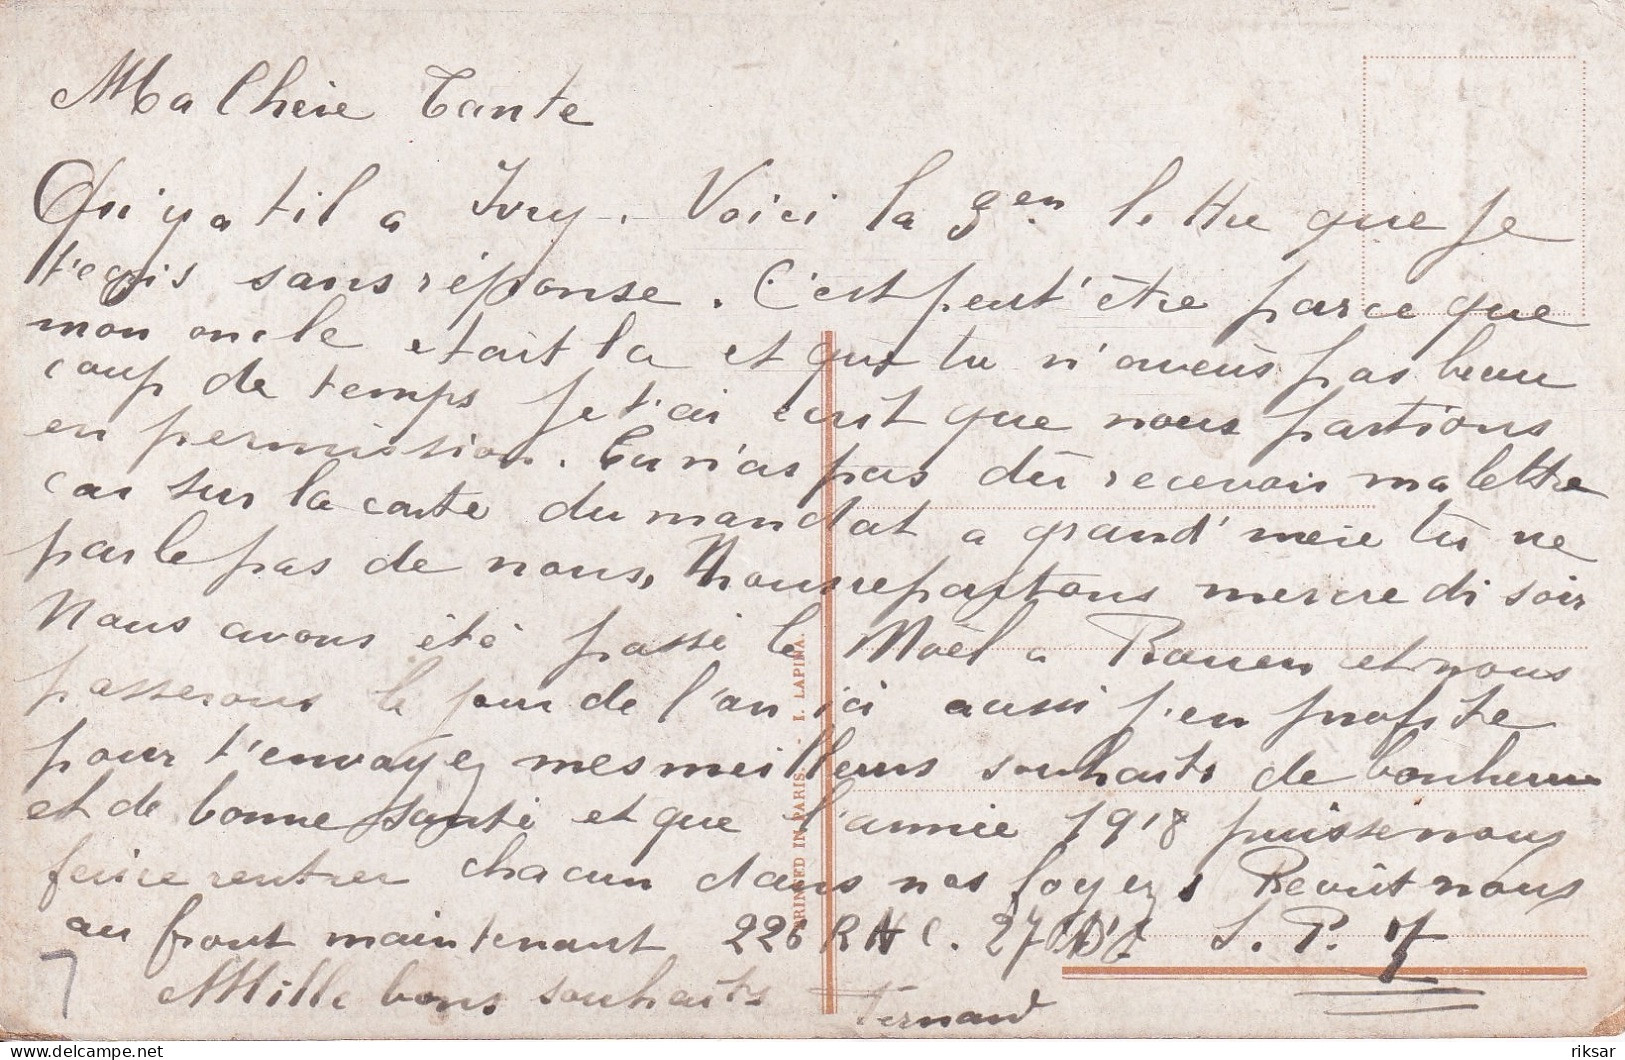 Ma Chère Tante
Qu'y a til a Ivry. Voici la 3em lettre que je
t'ecris sans réponse. C'est peut'être parce que
mon oncle etait la et que tu n'aveus pas beau
coup de temps Je t'ai ecrit que nous partions
en permission. Tu n'as pas dû recevoir ma lettre
car sur la carte du mandat a grand'mère tu ne
parle pas de nous, Nous repartons mercredi soir
Nous avons été passé le Noël a Rouen et nous
passerons le jour de l'an ici aussi j'en profite
pour t'envoyez mes meilleurs souhaits de bonheur
et de bonne santé et que l'année 1918 puisse nous
faire rentrer chacun dans nos foyers
au front maintenant 226 R A C. 27 Bie S. P. 7
Mille bons souhaits Fernand
PRINTED IN PARIS. - I. LAPINA.
7
riksar
delcampe.net